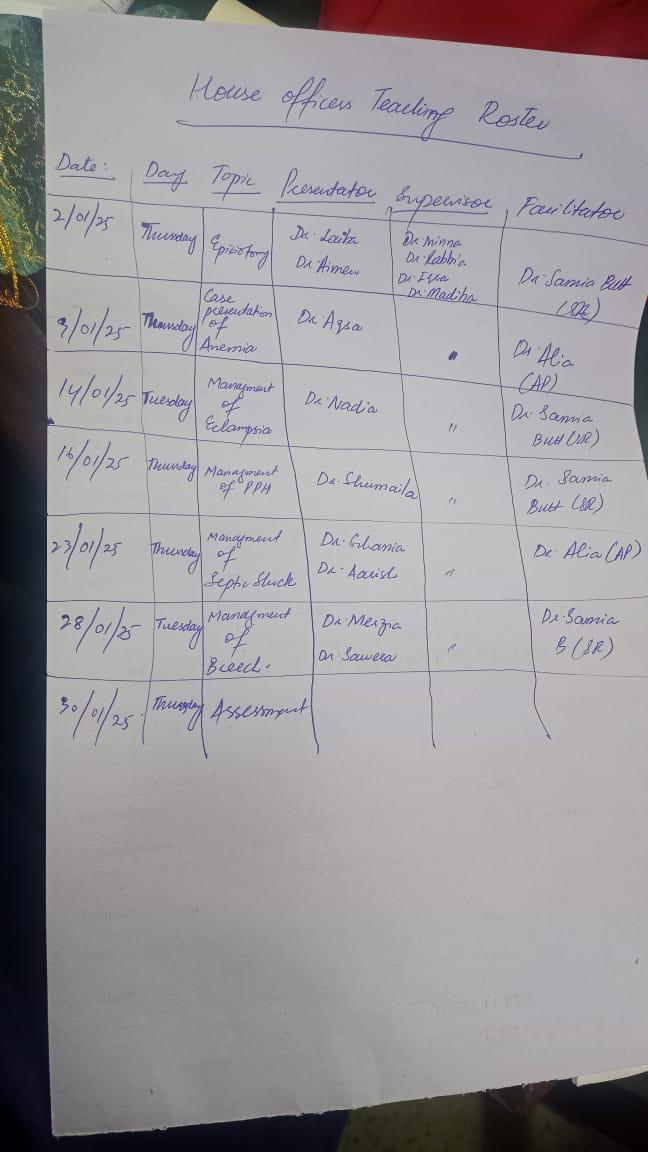 House officers Teaching Roster
Date: Day Topic Presentator Supervisor Facilitator
2/01/25 Thursday Episiotomy Dr. Laiba Dr. Aimen Dr. Minna Dr. Rabbia Dr. Iqra Dr. Madiha Dr. Samia Butt (SR)
9/01/25 Thursday Case presentation of Anemia Dr. Aqsa " Dr. Alia (AP)
14/01/25 Tuesday Managment of Eclampsia Dr. Nadia " Dr. Samia Butt (SR)
16/01/25 Thursday Managment of PPH Dr. Shumaila " Dr. Samia Butt (SR)
23/01/25 Thursday Managment of Septic Shock Dr. Ghania Dr. " Dr. Alia (AP)
28/01/25 Tuesday Managment of Breech. Dr. Dr. Saweea " Dr. Samia B (SR)
30/01/25. Thursday Assessment